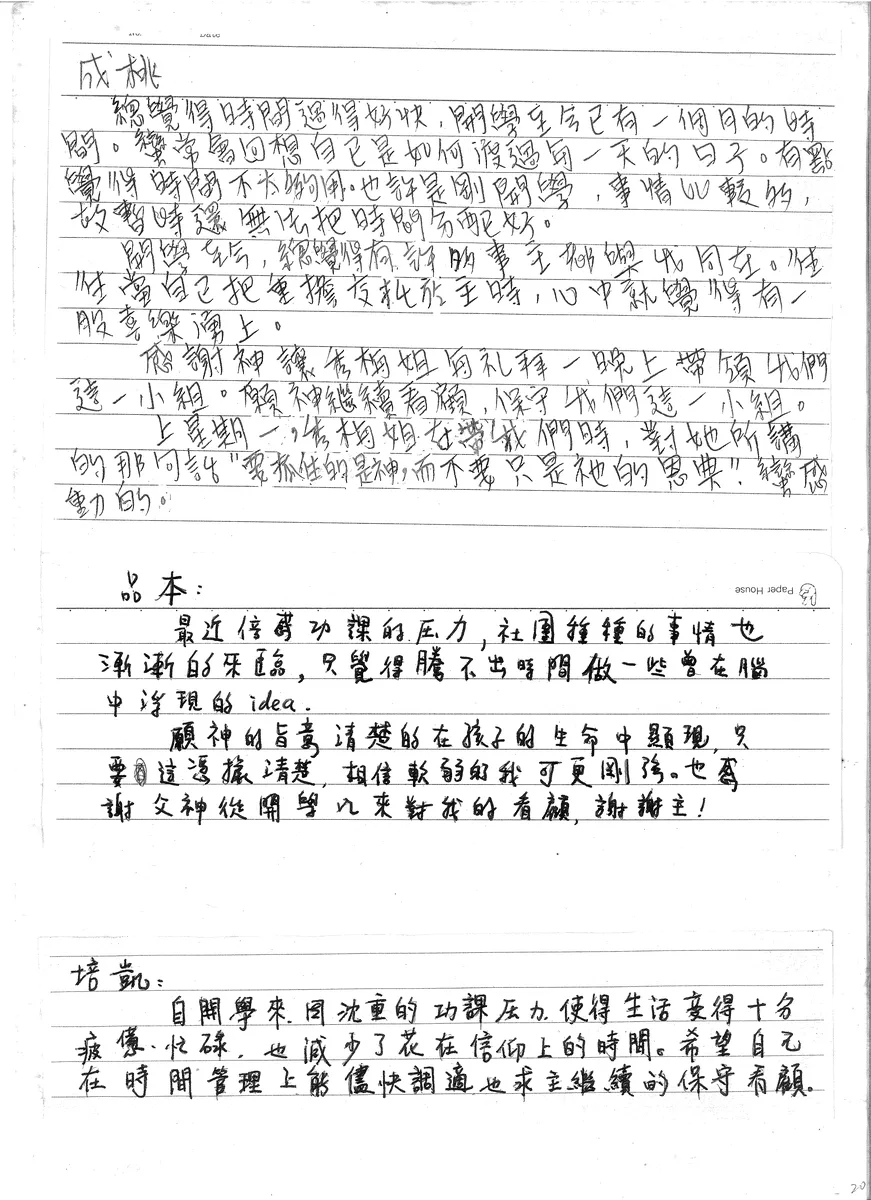 No. Date
成桃
總覺得時間過得好快,開學至今已有一個月的時
間。蠻常會回想自己是如何渡過每一天的日子。有點
覺得時間不太夠用。也許是剛開學,事情比較的,
故暫時還無法把時間分配好。
開學至今,總覺得有許的事主都與我同在。往
往當自己把重擔交託於主時,心中就覺得有一
股喜樂湧上。
感謝神讓秀梅姐每礼拜一晚上帶領我們
這一小組。願神繼續看顧,保守我們這一小組。
上星期一,秀梅姐在帶我們時,對她所講
的那句話"要抓住的是神,而不要只是祂的恩典".蠻感
動的。
Paper House
品本:
最近倍感功課的压力,社團種種的事情也
漸漸的來臨,只覺得騰不出時間做一些曾在腦
中浮現的idea.
願神的旨意清楚的在孩子的生命中顯現,只
要這憑據清楚,相信軟弱的我可更剛強。也感
謝父神從開學以來對我的看顧,謝謝主!
培凱:
自開學來.因沈重的功課压力.使得生活變得十分
疲憊.忙碌.也減少了花在信仰上的時間。希望自己
在時間管理上能儘快調適也求主繼續的保守看顧.
20